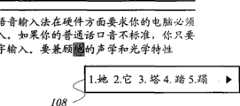 语音输入法在硬件方面要求你的电脑必须
入。如果你的普通话口音不标准，你只要
字输入。要兼顾的声学和光学特性
1.她 2.它 3.塔 4.踏 5.蹋
108